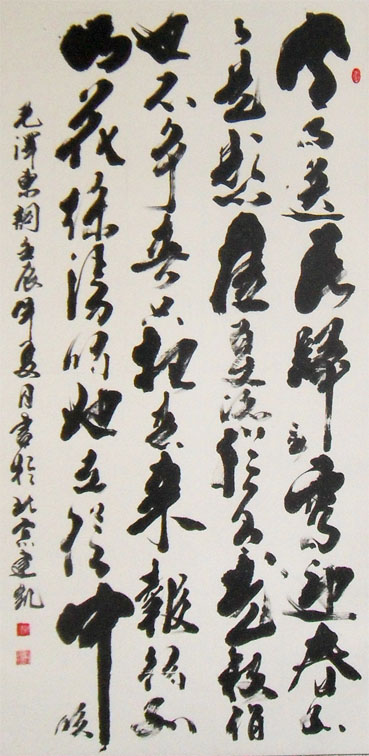 风雨送春歸飛雪迎春到
已是悬崖百丈冰犹有花枝俏
也不争春只把春来報待到
山花爛漫時她在丛中笑
毛澤東詞壬辰年夏月書於北京建凱